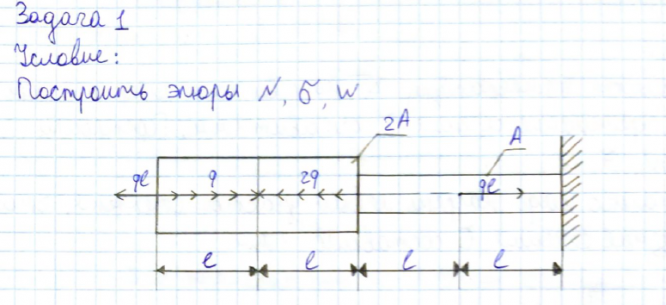 Задача 1
Условие:
Построить эпюры N, σ, w
2A
A
ql
q
2q
ql
l
l
l
l